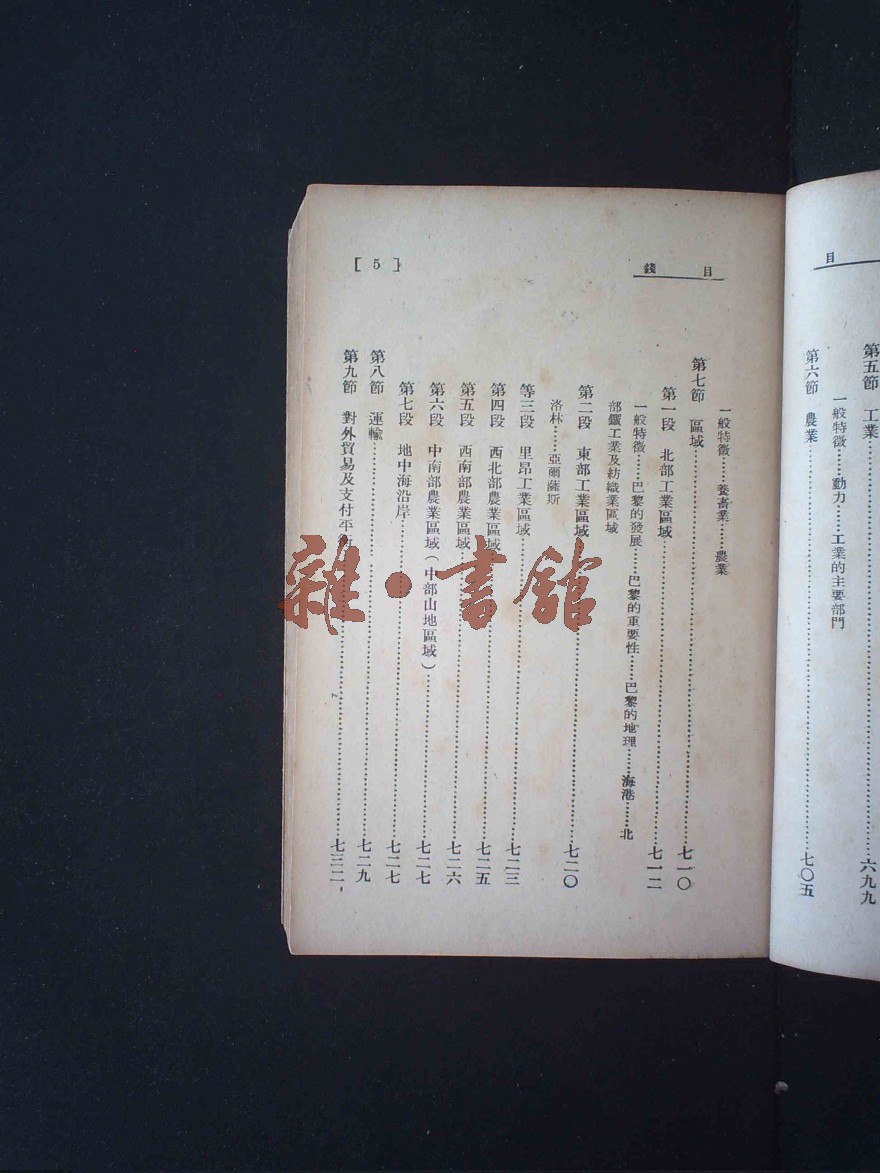 目
第五節　工業……六九九
一般特徵……動力……工業的主要部門
第六節　農業……七〇五
目　錢
[ 5 ]
一般特徵……養畜業……農業
第七節　區域……七一〇
第一段　北部工業區域……七一二
一般特徵……巴黎的發展……巴黎的重要性……巴黎的地理……海港……北
部鑛工業及紡織業區域
第二段　東部工業區域……七二〇
洛林……亞爾薩斯
等三段　里昂工業區域……七二三
第四段　西北部農業區域……七二五
第五段　西南部農業區域……七二六
第六段　中南部農業區域（中部山地區域）……七二七
第七段　地中海沿岸……七二七
第八節　運輸……七二九
第九節　對外貿易及支付平衡……七三二
雜·書舘